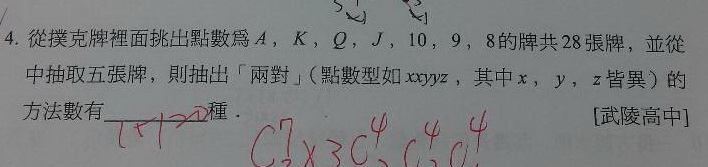 4. 從撲克牌裡面挑出點數為 A，K，Q，J，10，9，8的牌共28張牌，並從
中抽取五張牌，則抽出「兩對」（點數型如 xxyyz，其中 x，y，z 皆異）的
方法數有________種．
[武陵高中]
C⁷₃×3C⁴₂C⁴₂C⁴